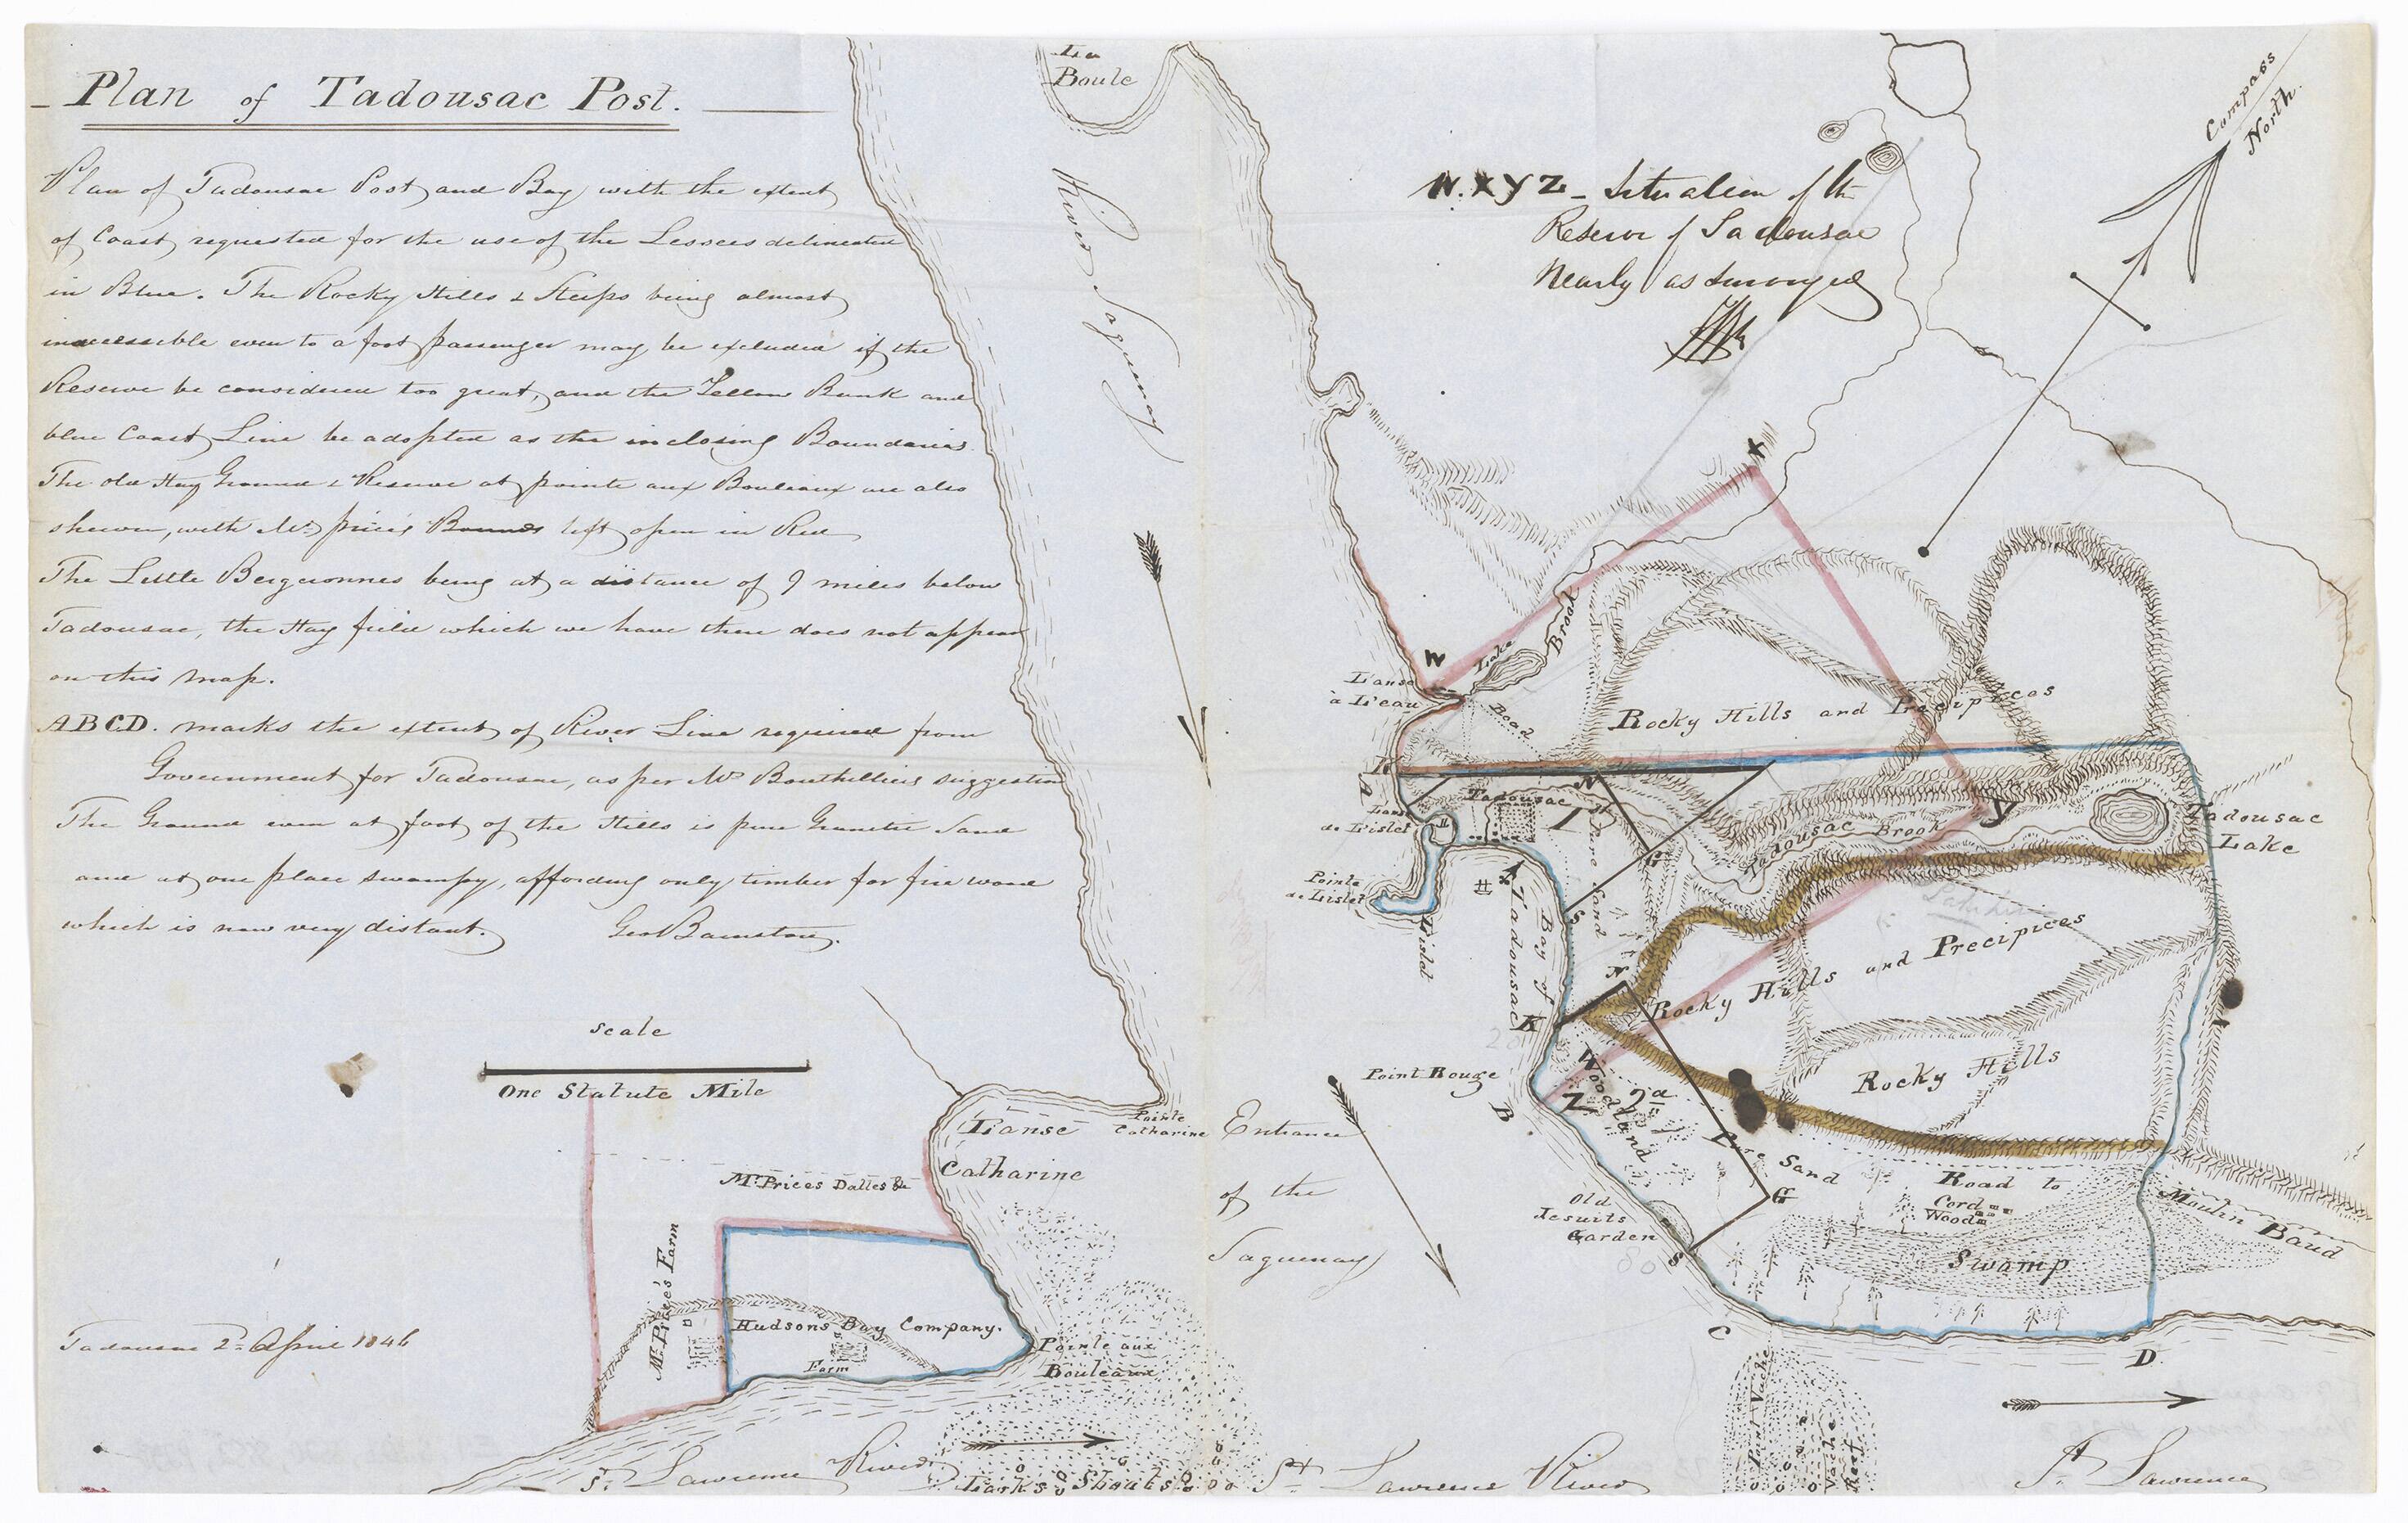 Plan of Tadousac Post.
Plan of Tadousac Post and Bay with the extent
of Coast requested for the use of the Lessees delineated
in Blue. The Rocky Hills & Steeps being almost
inaccessible even to a foot passenger may be excluded if the
Reserve be considered too great, and the Yellow Bank and
blue Coast Line be adopted as the inclosing Boundaries
The old Hay Ground & Reserve at pointe aux Bouleaux are also
shewn, with Mr. price's Bounds left open in Red
The Little Bergeronnes being at a distance of 9 miles below
Tadousac, the Hay field which we have there does not appear
on this map.
ABCD. marks the extent of River Line required from
Government for Tadousac, as per Mr Bouthilliers suggestion
The Ground even at foot of the Hills is pure Granitic Sand
and at one place swampy, affording only timber for fire wood
which is now very distant.
Geo Barnston.
Scale
One Statute Mile
Tadousac 2d April 1846
La
Boule
River Saguenay
W.XYZ - Situation of the
Reserve of Tadousac
Nearly as surveyed
Compass
North.
X
W
Lake
Brook
L'anse
à L'eau
Road
Rocky Hills and Precipices
R
A
N
Tadousac
L'anse
de L'islet
I
Pure Sand
G
Tadousac Brook
Y
Tadousac
Lake
Pointe
de L'islet
L'islet
Bay of
Tadousac
S
N
K
Rocky Hills and Precipices
Rocky Hills
Point Rouge
B
Z
Woodland
2a
Pure Sand
G
Old
Jesuits
Garden
80
S
Road to
Moulin Baud
Cord
Wood
Swamp
C
D
Pointe
Catharine
L'anse
Catharine
Mr Prices Dalles &c
Mr Price's Farm
Hudsons Bay Company.
Farm
Pointe aux
Bouleaux
Entrance
of the
Saguenay
St. Lawrence River
Larks Shoals
St. Lawrence River
Point Vache
Vache
Reef
St Lawrence